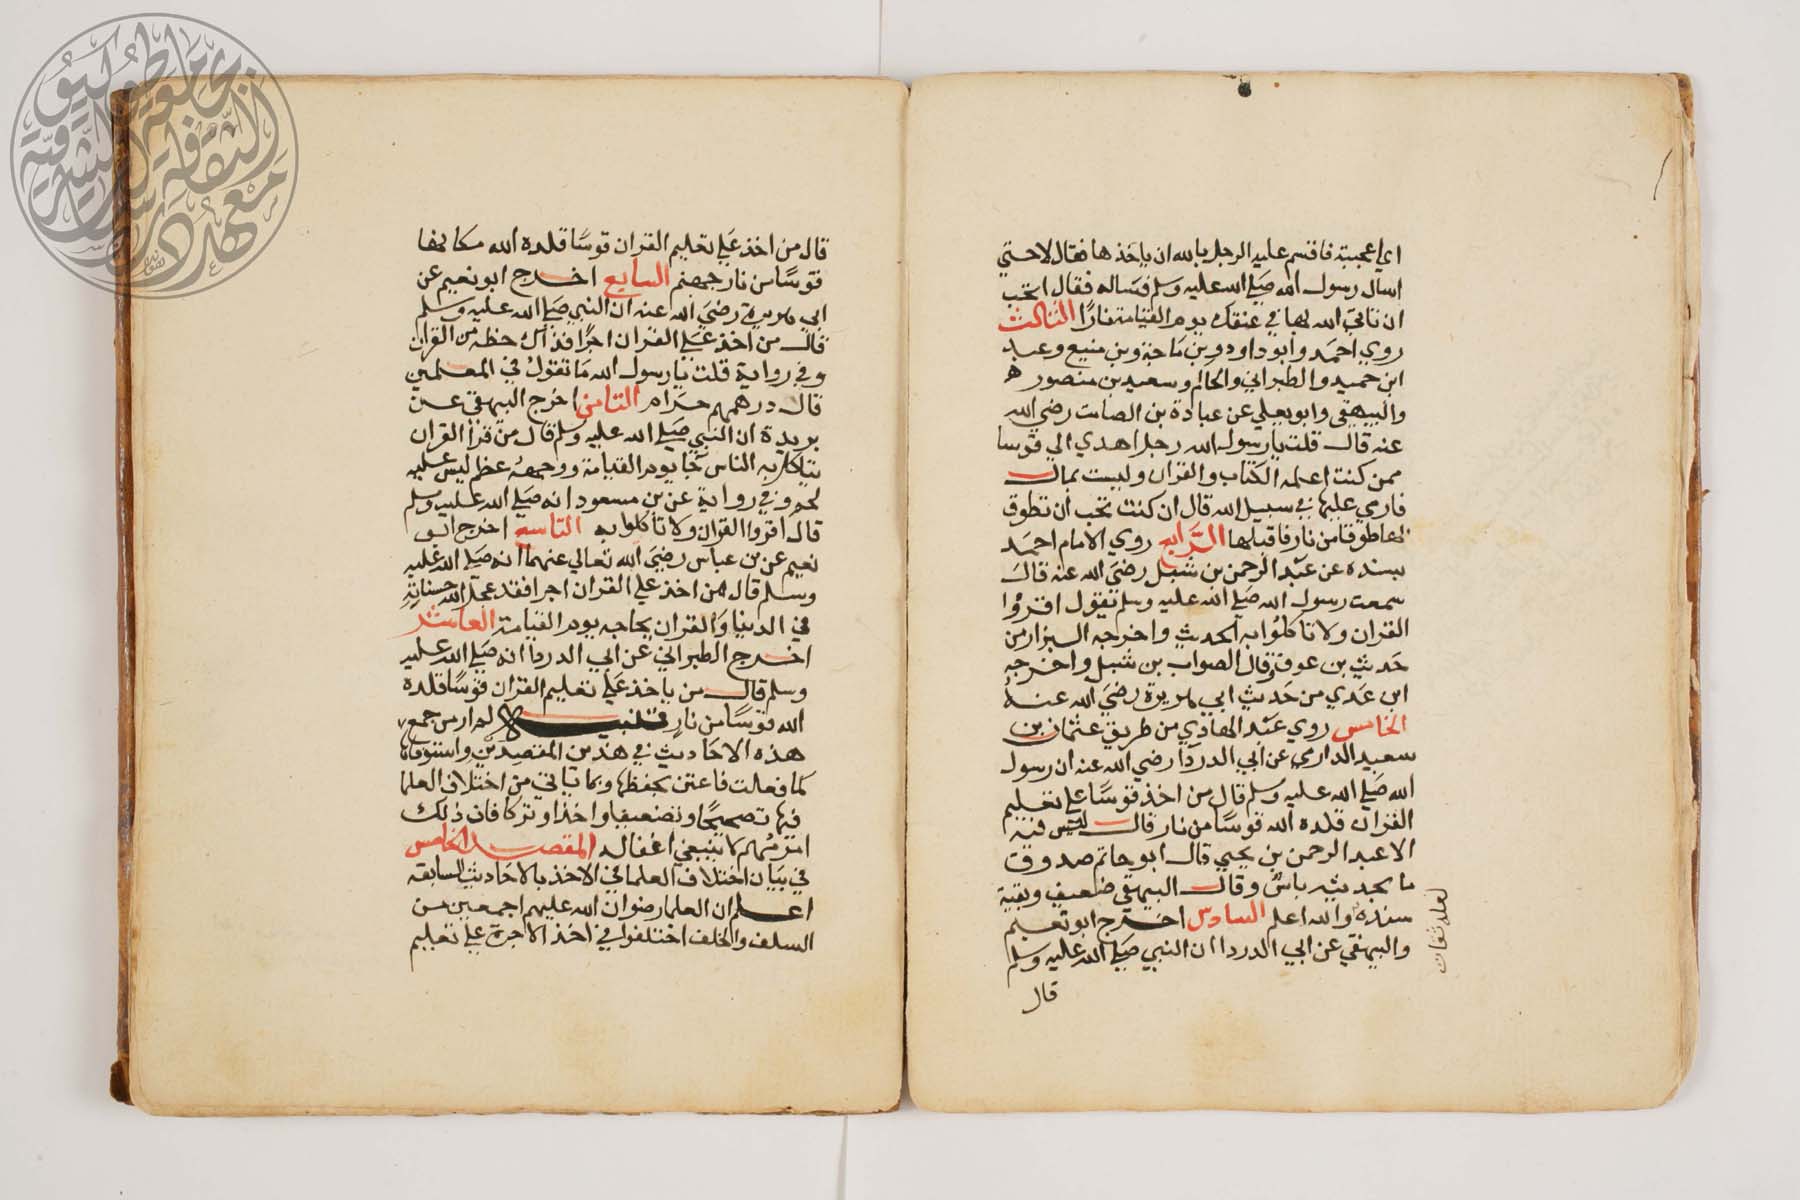 اي اعجبته فاقسم عليه الرجل بالله ان ياخذها فقال لا حتي
اسال رسول الله صلي الله عليه وسلم فساله فقال اتحب
ان تاتي الله بها في عنقك يوم القيامة نارا الثالث
روي احمد وابو داود وبن ماجة وبن منيع وعبد
ابن حميد والطبراني والحاكم وسعيد بن منصور
والبيهقي وابو يعلي عن عبادة بن الصامت رضي الله
عنه قال قلت يا رسول الله رجل اهدي الي قوسا
ممن كنت اعلمه الكتاب والقران وليست بمال
فارمي عليها في سبيل الله قال ان كنت تحب ان تطوق
بها طوقا من نار فاقبلها الرابع روي الامام احمد
بسنده عن عبد الرحمن بن شبل رضي الله عنه قال
سمعت رسول الله صلي الله عليه وسلم يقول اقروا
القران ولا تاكلوا به الحديث واخرجه البزار من
حديث بن عوف وقال الصواب بن شبل واخرجه
ابن عدي من حديث ابي هريرة رضي الله عنه
الخامس روي عبد الهادي من طريق عثمان بن
سعيد الداري عن ابي الدردا رضي الله عنه ان رسول
الله صلي الله عليه وسلم قال من اخذ قوسا علي تعليم
القران قلده الله قوسا من نار قال ليس فيه
الا عبد الرحمن بن يحيي قال ابو حاتم صدوق
ما بحديثه باس وقال البيهقي ضعيف وبقية
سنده والله اعلم السادس اخرج ابو نعيم
والبيهقي عن ابي الدردا ان النبي صلي الله عليه وسلم
قال
لعله ثقات
قال من اخذ علي تعليم القران قوسا قلده الله مكانها
قوسا من نار جهنم السابع اخرج ابو نعيم عن
ابي هريرة رضي الله عنه ان النبي صلي الله عليه وسلم
قال من اخذ علي القران اجرا فذاك حظه من القران
وفي رواية قلت يا رسول الله ما تقول في المعلمين
قال درهمهم حرام الثامن اخرج البيهقي عن
بريدة ان النبي صلي الله عليه وسلم قال من قرا القران
يتاكل به الناس جا يوم القيامة ووجهه عظم ليس عليه
لحم وفي رواية عن بن مسعود انه صلي الله عليه وسلم
قال اقروا القران ولا تاكلوا به التاسع اخرج ابو
نعيم عن بن عباس رضي الله تعالي عنهما انه صلي الله عليه
وسلم قال من اخذ علي القران اجرا فقد عجل الله حسناته
في الدنيا والقران يحاجه يوم القيامة العاشر
اخرج الطبراني عن ابي الدردا انه صلي الله عليه
وسلم قال من ياخذ علي تعليم القران قوسا قلده
الله قوسا من نار تنبيه لم ار من جمع
هذه الاحاديث في هذين المقصدين واستوفاها
كما فعلت فاعتن بحفظها وبما ياتي من اختلاف العلما
فيها تصحيحا وتضعيفا واخذا وتركا فان ذلك
امر مهم لا ينبغي اغفاله المقصد الخامس
في بيان اختلاف العلما في الاخذ بالاحاديث السابقة
اعلم ان العلما رضوان الله عليهم اجمعين من
السلف والخلف اختلفوا في اخذ الاجرة علي تعليم